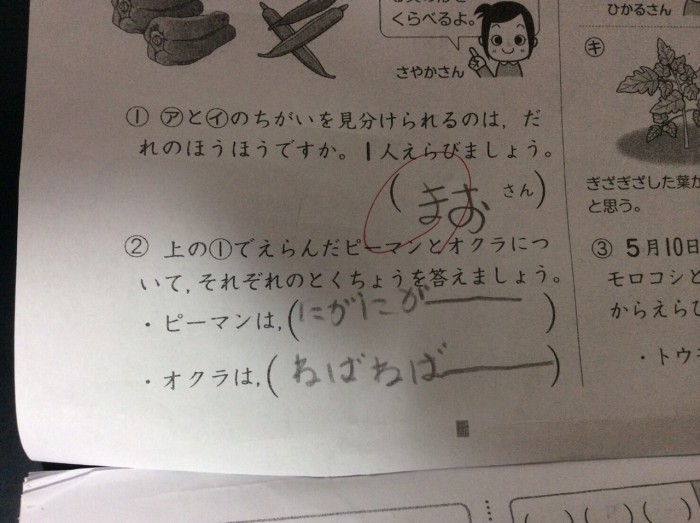 くらべるよ。
さやかさん
① ㋐と㋑のちがいを見分けられるのは，だ
れのほうほうですか。1人えらびましょう。
(まおさん)
② 上の①でえらんだピーマンとオクラにつ
いて，それぞれのとくちょうを答えましょう。
・ピーマンは，(にがにが——)
・オクラは，(ねばねば——)
ひかるさん
㋖
ぎざぎざした葉が
と思う。
③ 5月10日
モロコシと
からえらび
・トウ